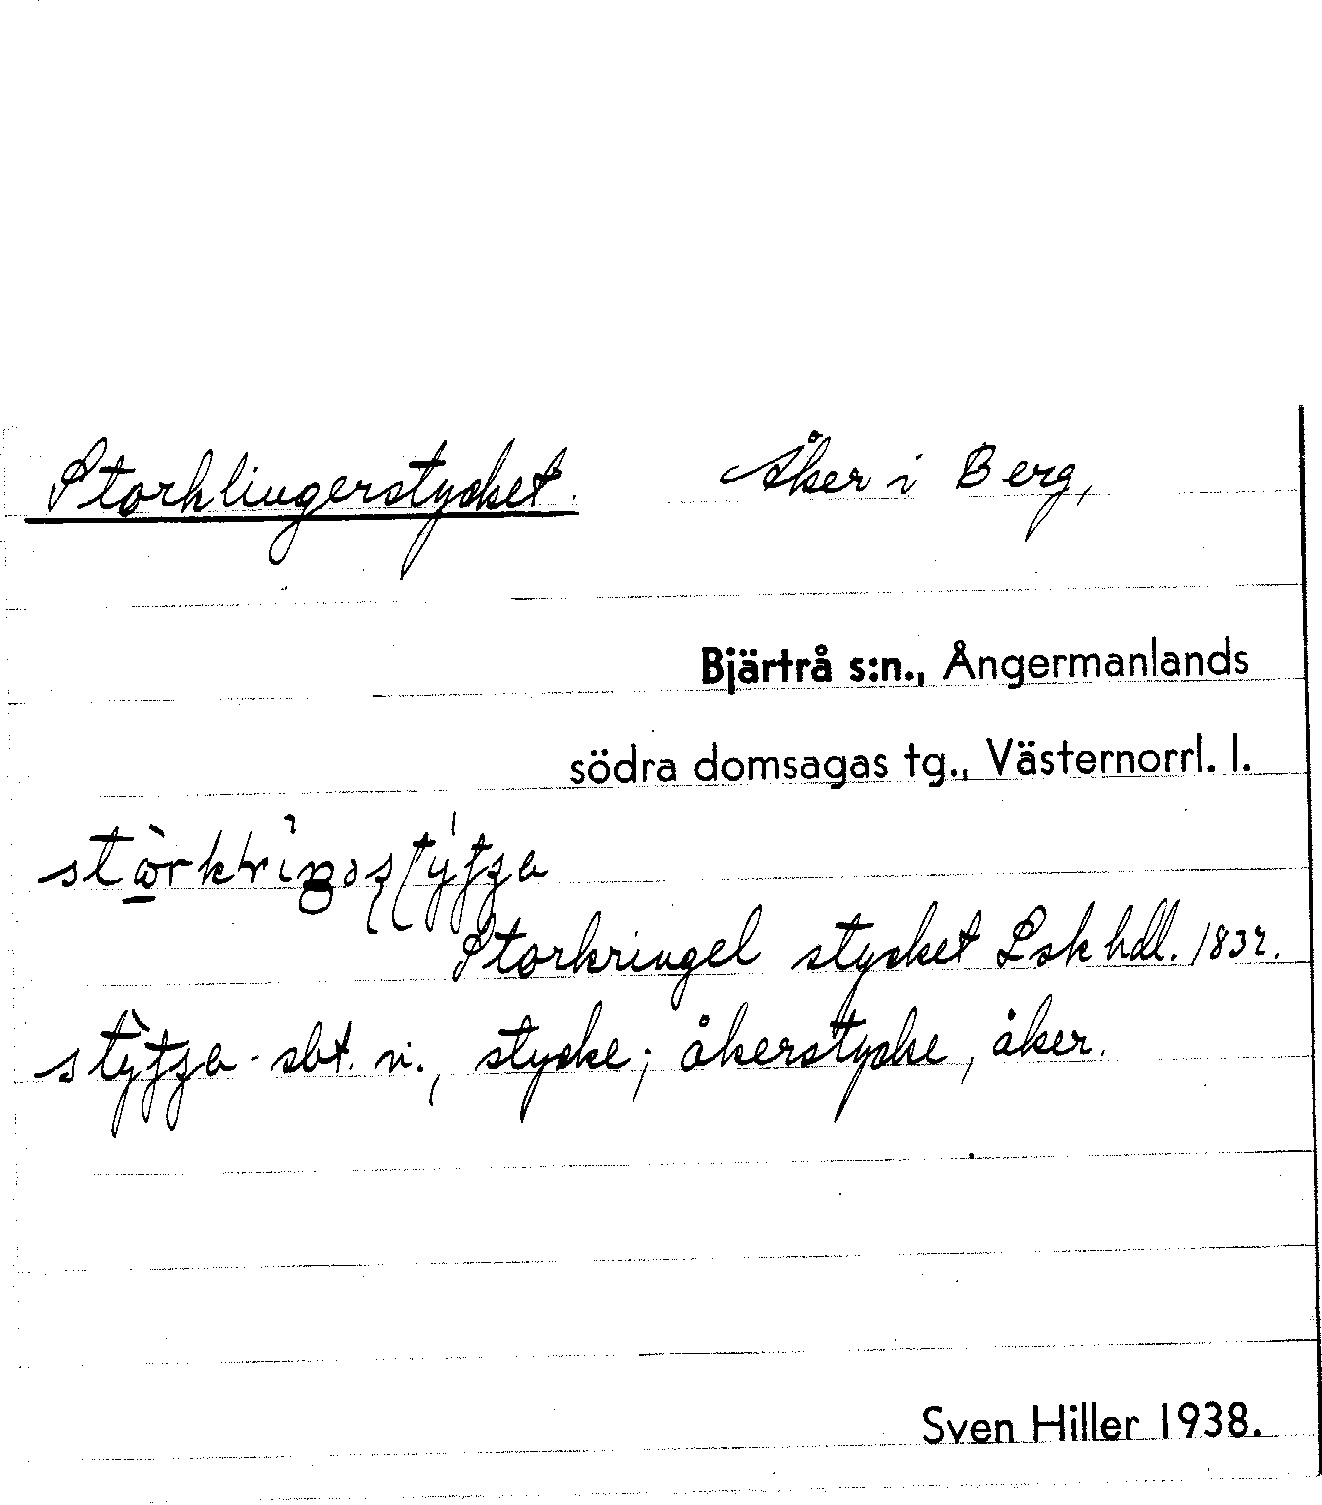 Storklingerstycket. Åker i Berg,
Bjärtrå s:n., Ångermanlands
södra domsagas tg., Västernorrl. l.
Storkringel stycket Lskhdl. 1832.
sbt. n., stycke; åkerstycke, åker.
Sven Hiller 1938.